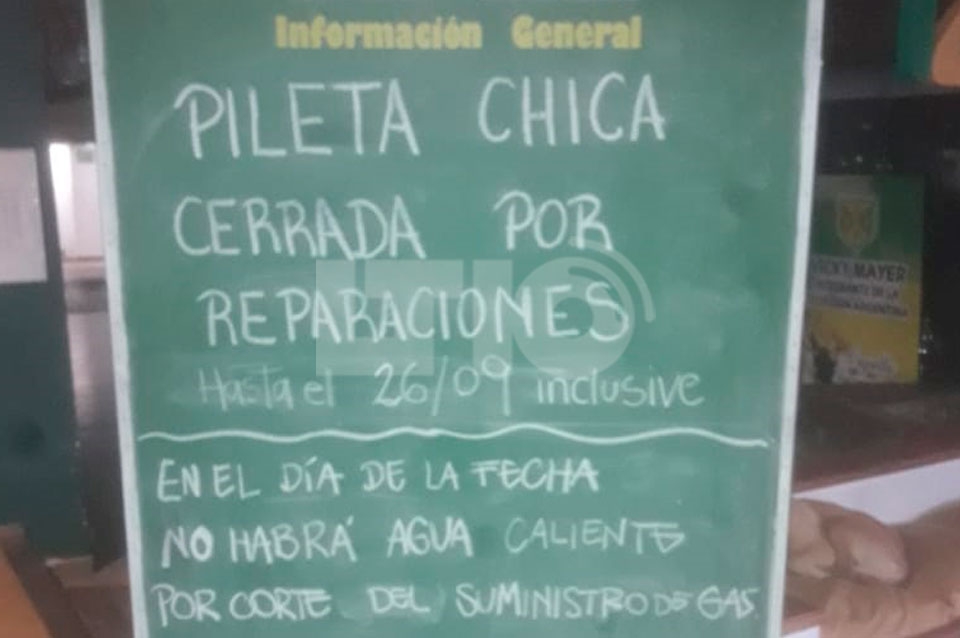 Información General
PILETA CHICA
CERRADA POR
REPARACIONES
Hasta el 26/09 inclusive
EN EL DÍA DE LA FECHA
NO HABRÁ AGUA CALIENTE
POR CORTE DEL SUMINISTRO DE GAS
LT10
MAYER
INTEGRANTE DE LA
ARGENTINA